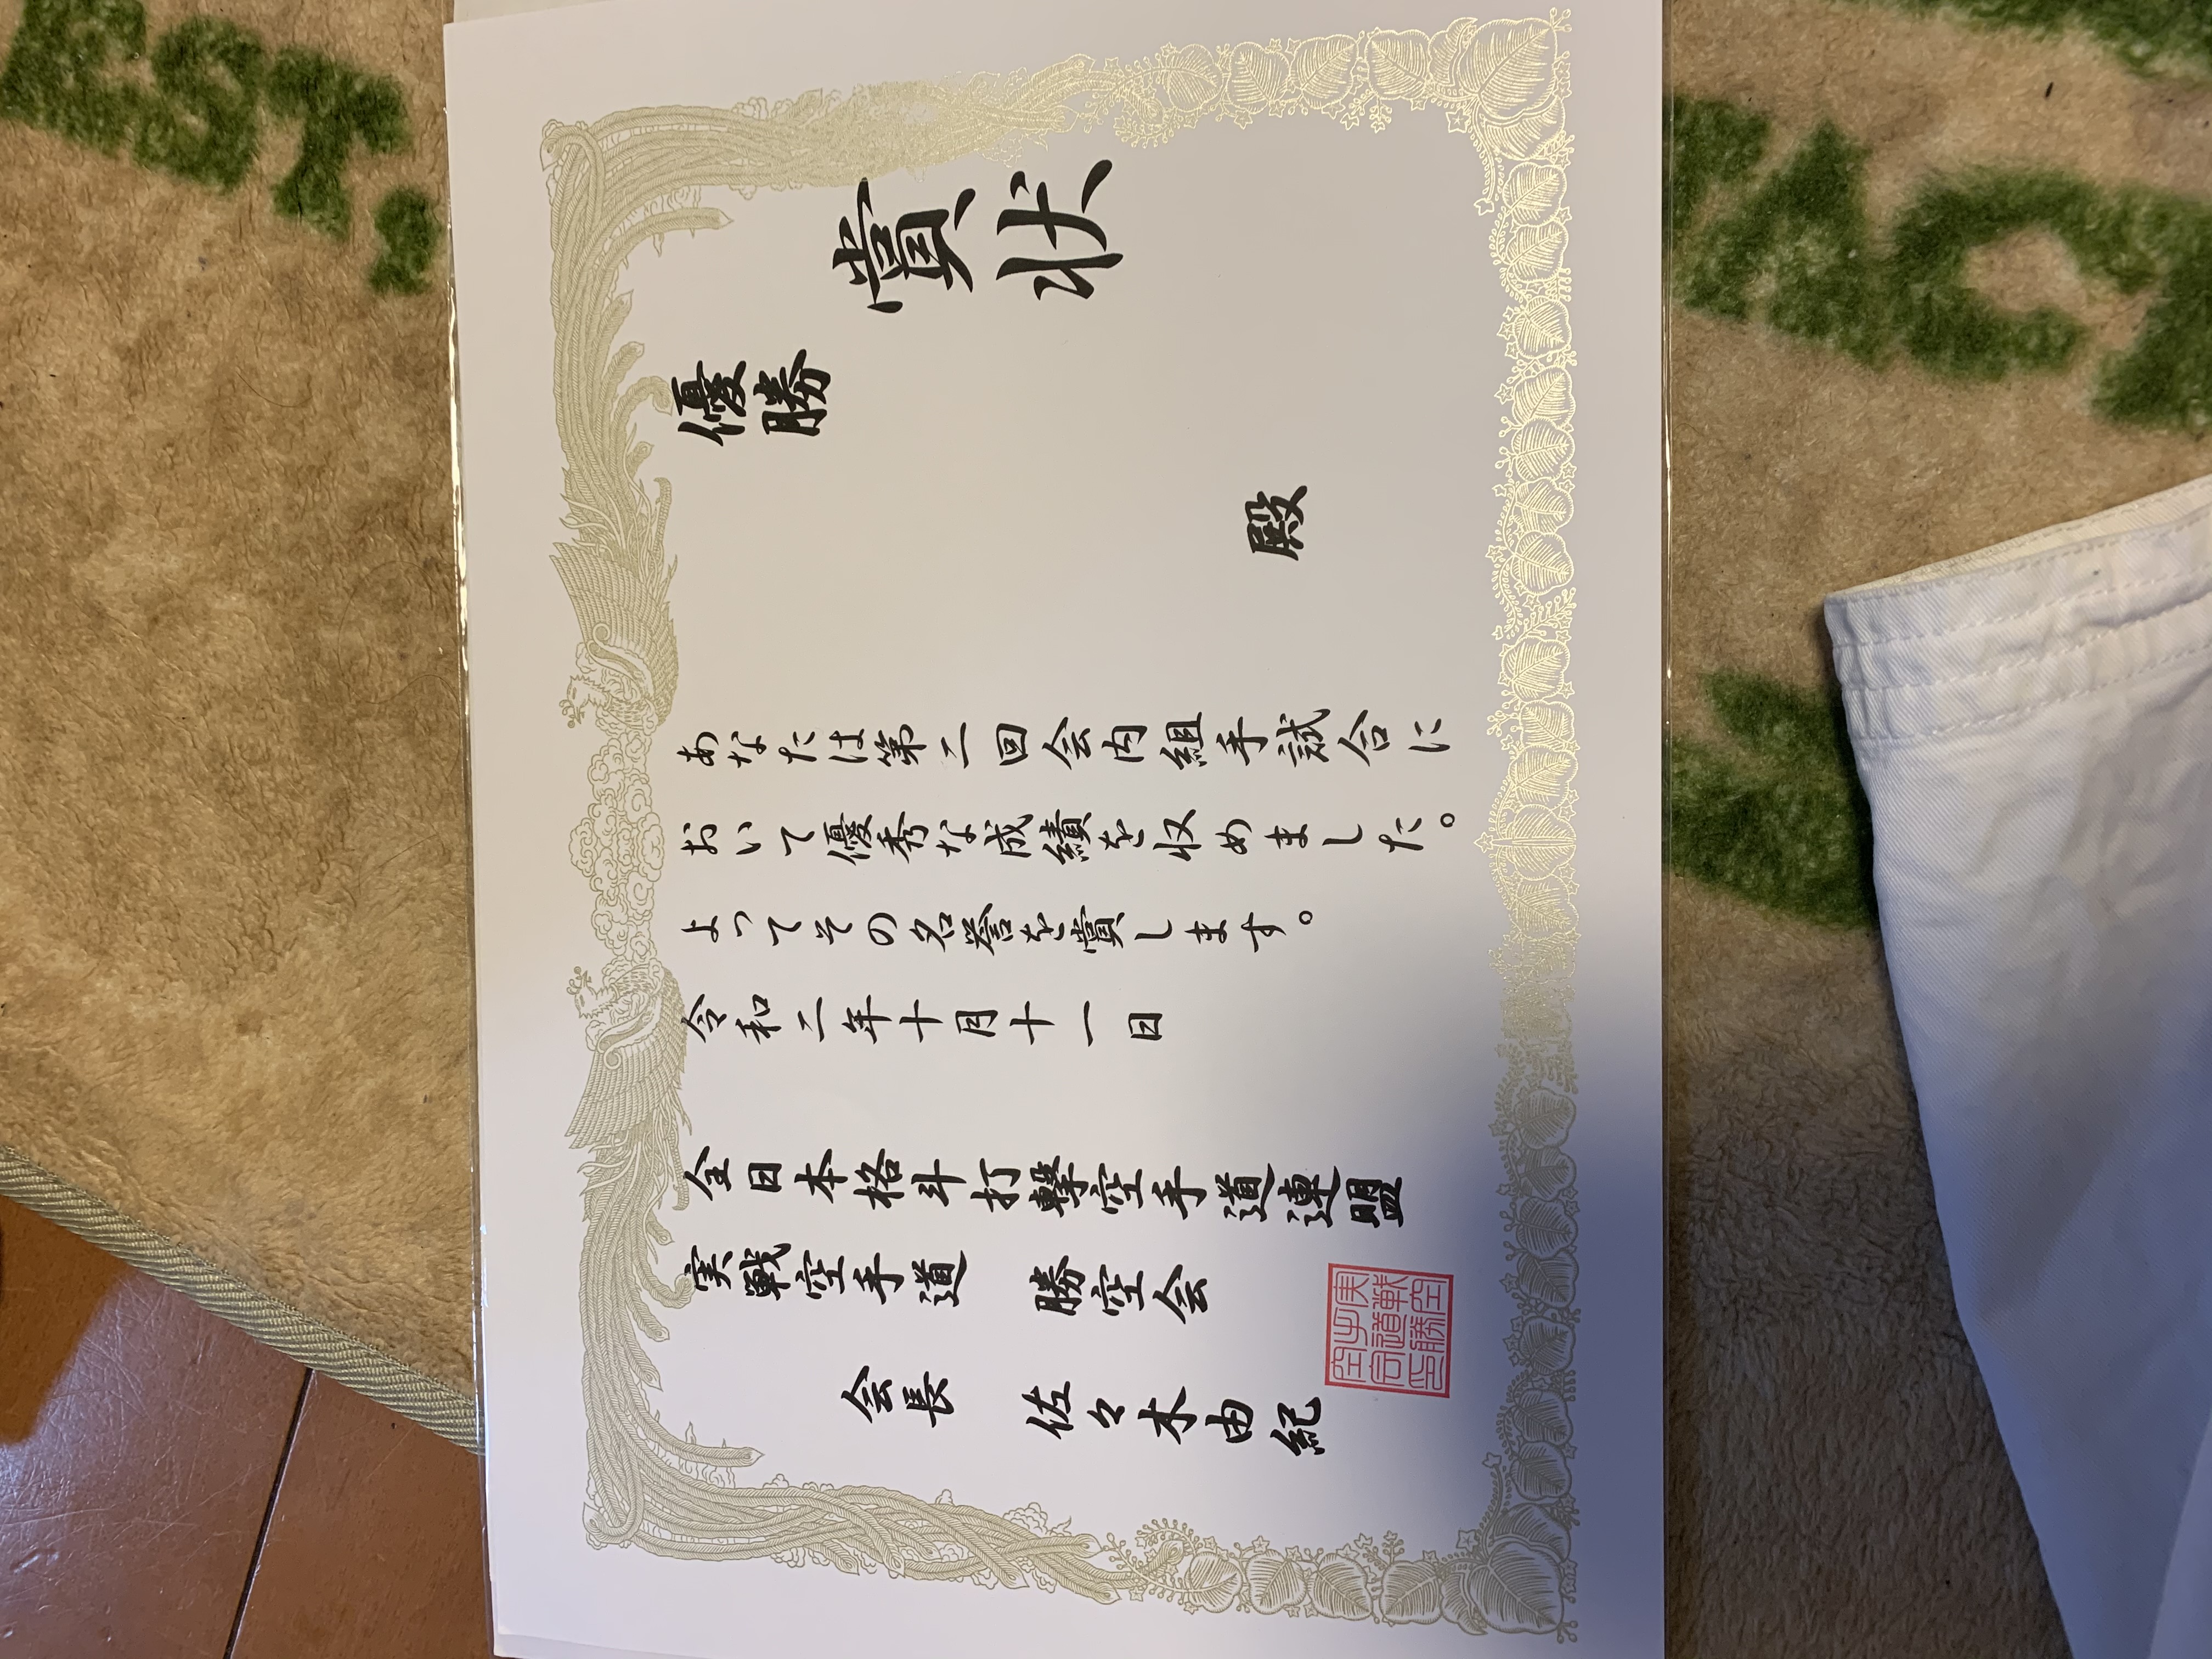 賞状
優勝
殿
あなたは第二回会内組手試合に
おいて優秀な成績を収めました。
よってその名誉を賞します。
令和二年十月十一日
全日本格斗打撃空手道連盟
実戦空手道　勝空会
会長　佐々木由紀
実戦空
手道勝
空会印
EST.